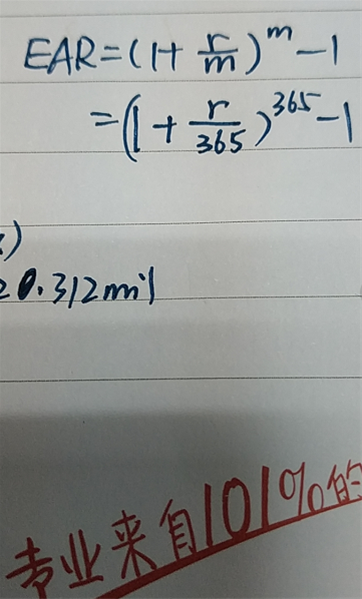 EAR=(1+ r/m)^m-1
=(1+ r/365)^365-1
)
20.312mil
专业来自101%的